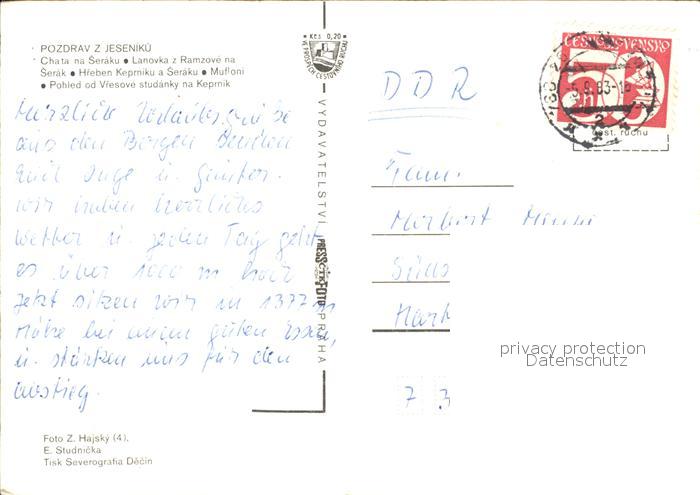 POZDRAV Z JESENÍKŮ
Chata na Šeráku ● Lanovka z Ramzové na
Šerák ● Hřeben Keprníku a Šeráku ● Mufloni
● Pohled od Vřesové studánky na Keprník
Kčs 0,20
VE PROSPĚCH CESTOVNÍHO RUCHU
VYDAVATELSTVÍ PRESSFOTO PRAHA
ČESKOSLOVENSKO
-5.9.83-1
2
cest. ruchu
DDR
Fam.
Süd
Hart
7 3
Herzlich
aus den Bergen senden
Inge u. Günter.
wir haben herrliches
Wetter u. jeden Tag geht
es über 1000 m hoch
jetzt sitzen wir in 1377 m
Höhe bei einem guten Essen,
u. stärken uns für den
Anstieg.
Foto Z. Hajský (4),
E. Studnička
Tisk Severografia Děčín
privacy protection
Datenschutz